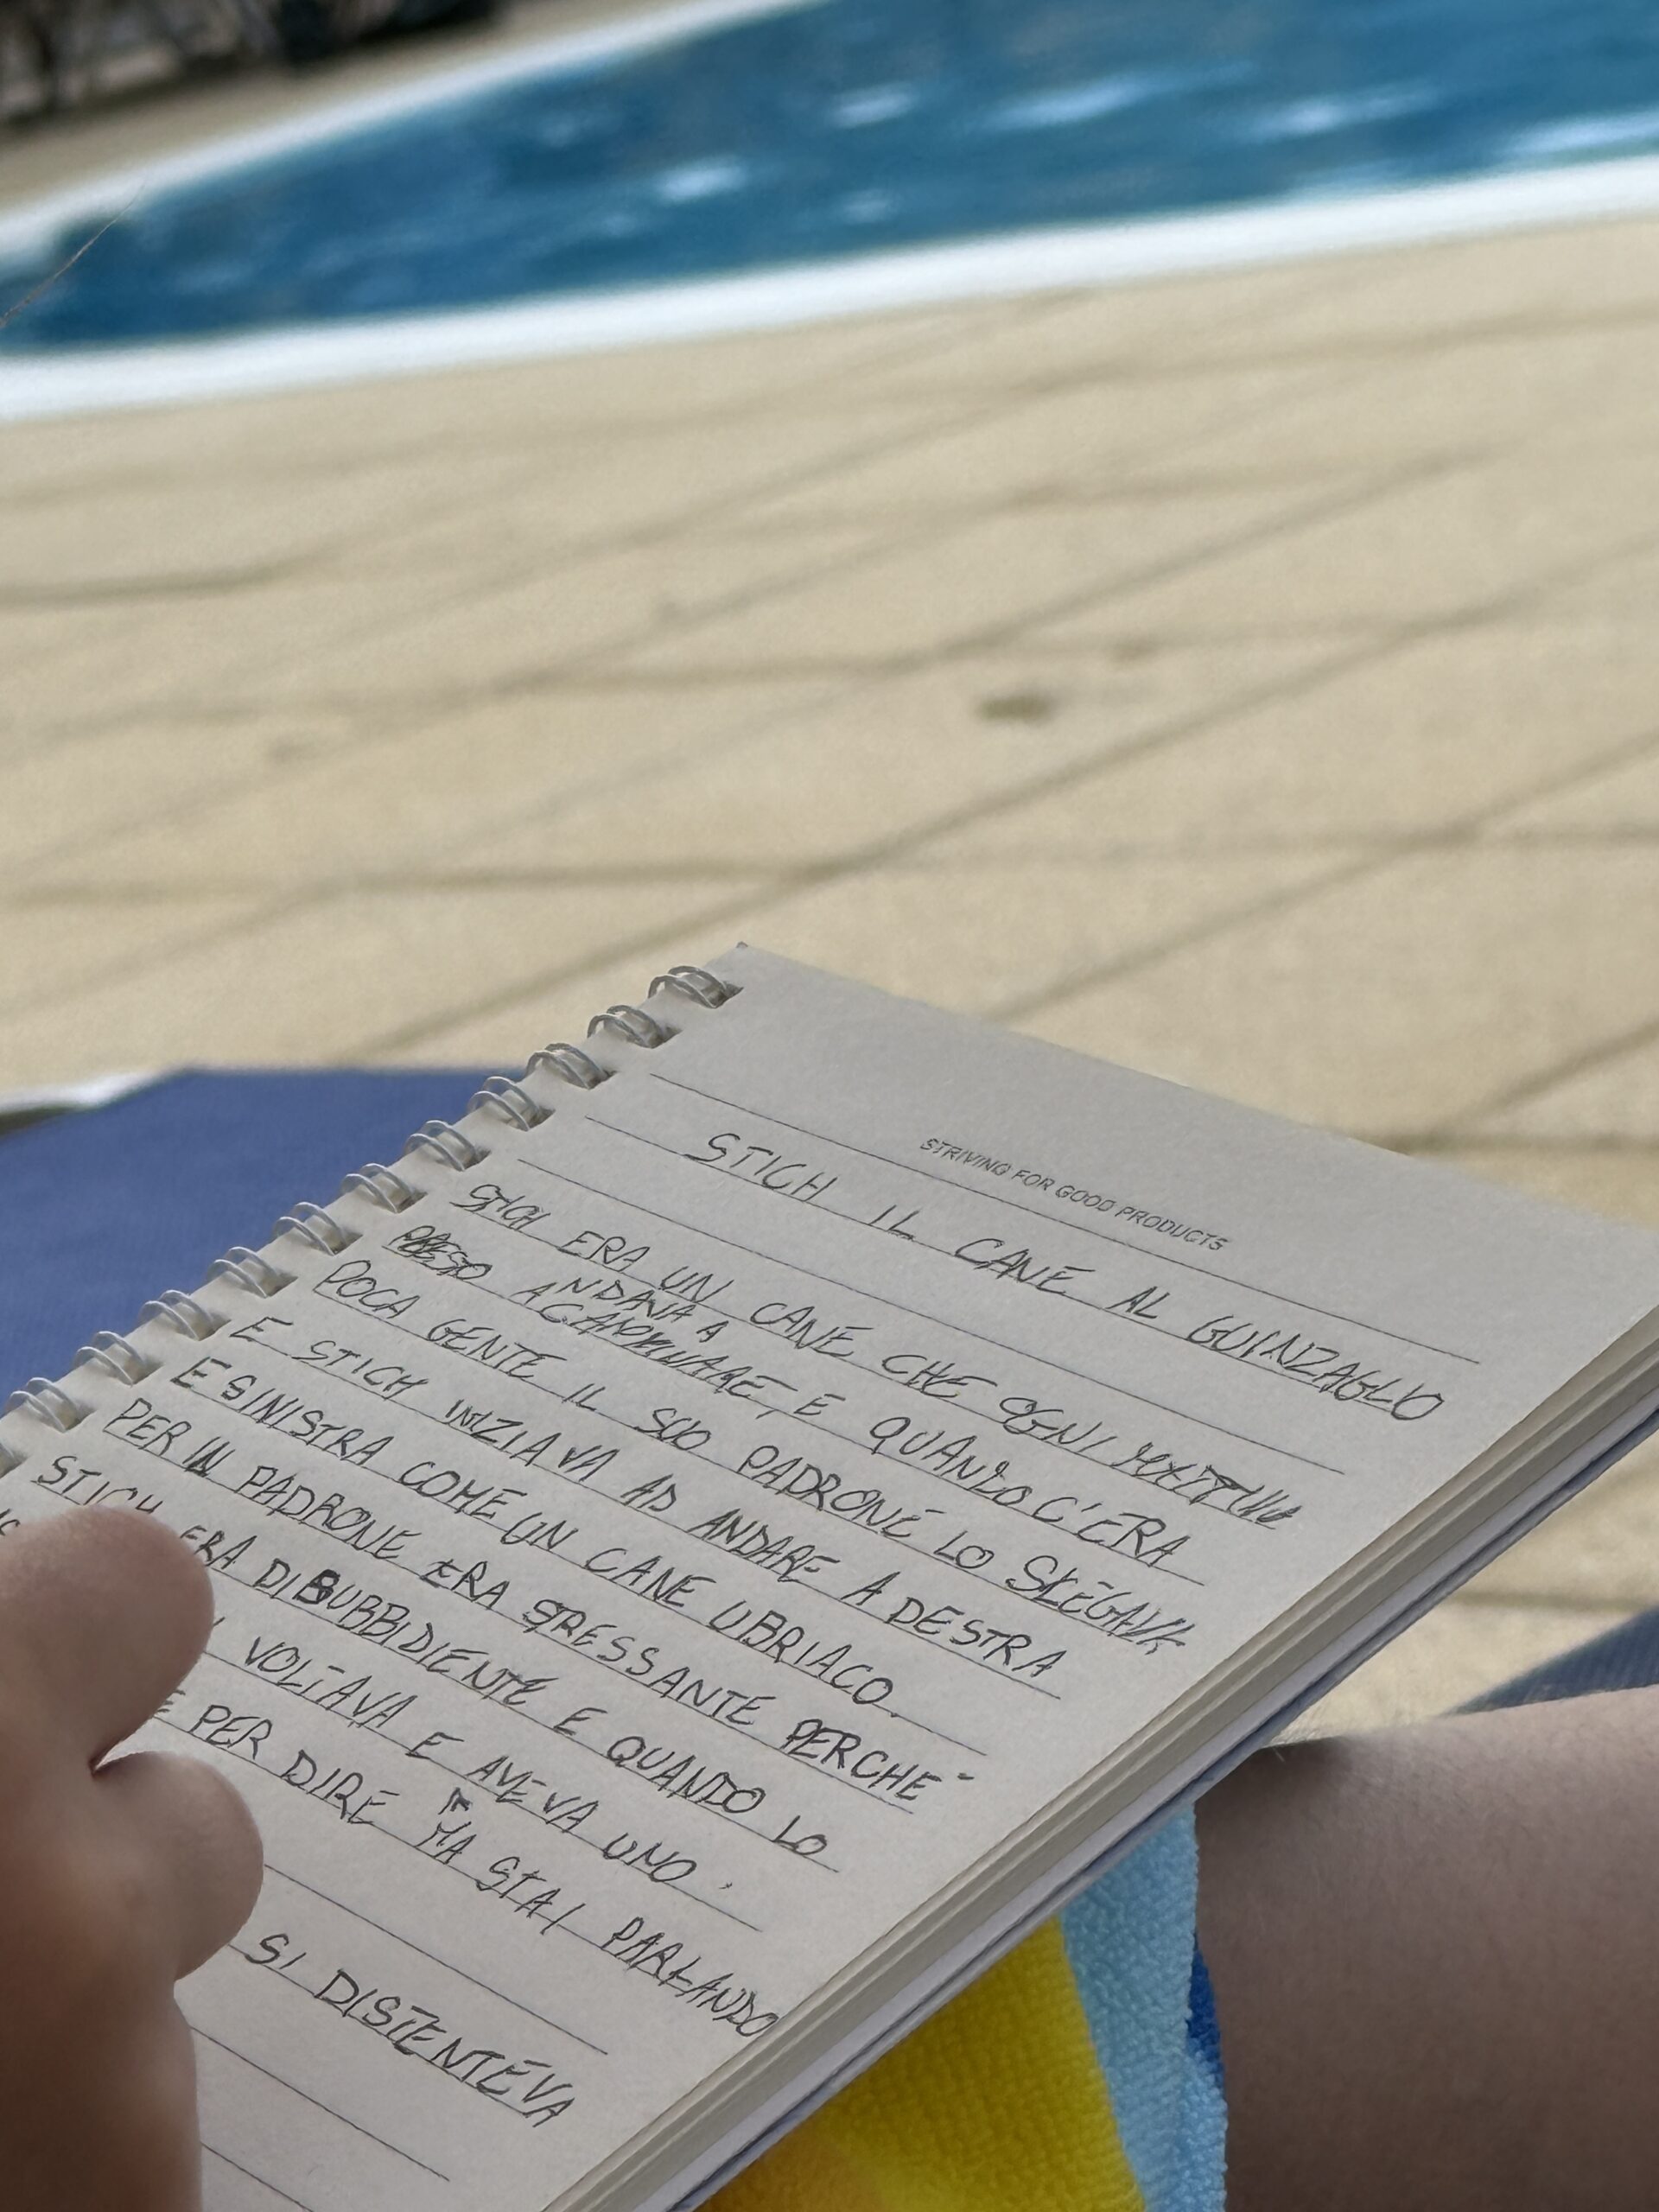 STRIVING FOR GOOD PRODUCTS
STICH IL CANE AL GUINZAGLIO
STICH ERA UN CANE CHE OGNI MATTINA
NDAVA A
A CAMMINARE, E QUANDO C'ERA
POCA GENTE IL SUO PADRONE LO SLEGAVA
E STICH INIZIAVA AD ANDARE A DESTRA
E SINISTRA COME UN CANE UBRIACO.
PER IL PADRONE ERA STRESSANTE PERCHE'
STICH ERA DIBUBBIDIENTE E QUANDO LO
VOLTAVA E AVEVA UNO
E PER DIRE "MA STAI PARLANDO
SI DISTENTEVA